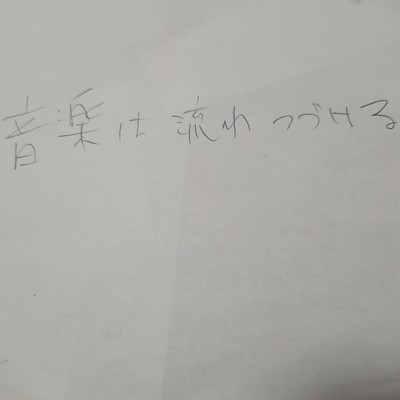 音楽は流れつづける